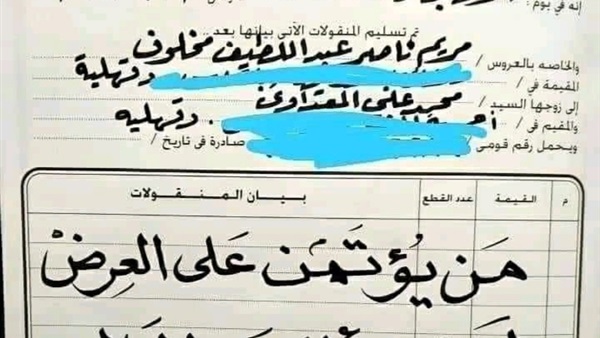 إنه في يوم :
تم تسليم المنقولات الآتى بيانها بعد ..
والخاصه بالعروس / مريم ناصر عبد اللطيف مخلوف
المقيمة في / دقهلية
إلى زوجها السيد / محمد علي المعداوي
والمقيم في / دقهليه
ويحمل رقم قومى / صادرة فى تاريخ /
م القيمة عدد القطع بيان المنقولات
مَن يُؤتَمَن عَلى العِرضْ